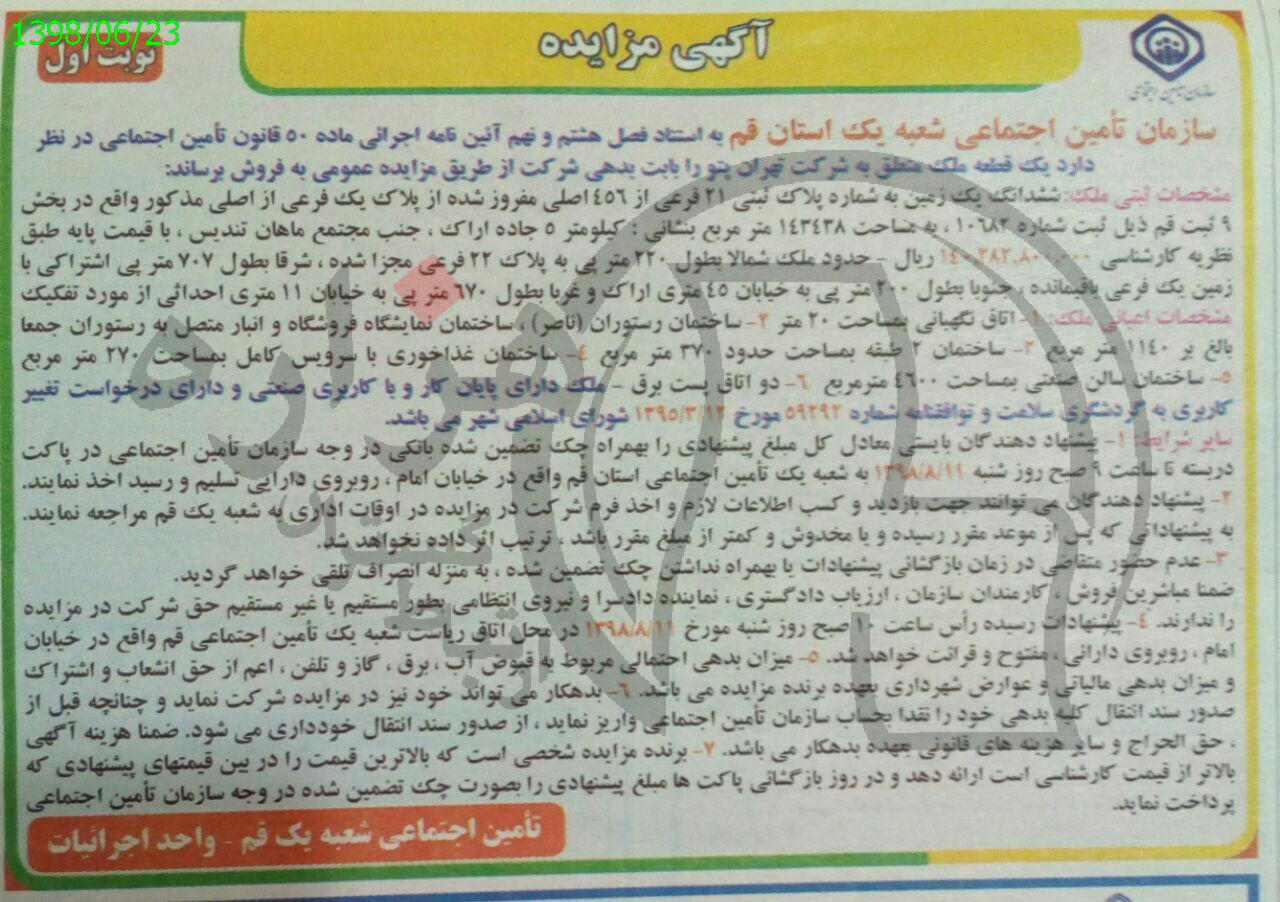 1398/06/23
آگهی مزایده
نوبت اول
سازمان تأمین اجتماعی
سازمان تأمین اجتماعی شعبه یک استان قم به استناد فصل هشتم و نهم آئین نامه اجرائی ماده ۵۰ قانون تأمین اجتماعی در نظر
دارد یک قطعه ملک متعلق به شرکت تهران پتو را بابت بدهی شرکت از طریق مزایده عمومی به فروش برساند:
مشخصات ثبتی ملک: ششدانگ یک زمین به شماره پلاک ثبتی ۲۱ فرعی از ۴۵۶ اصلی مفروز شده از پلاک یک فرعی از اصلی مذکور واقع در بخش
۹ ثبت قم ذیل ثبت شماره ۱۰۶۸۲ ، به مساحت ۱۴۳۴۳۸ متر مربع بنشانی : کیلومتر ۵ جاده اراک ، جنب مجتمع ماهان تندیس ، با قیمت پایه طبق
نظریه کارشناسی ۱۴۰،۲۸۲،۸۰۰،۰۰۰ ریال - حدود ملک شمالا بطول ۲۲۰ متر پی به پلاک ۲۲ فرعی مجزا شده ، شرقا بطول ۷۰۷ متر پی اشتراکی با
زمین یک فرعی باقیمانده ، جنوبا بطول ۲۰۰ متر پی به خیابان ۴۵ متری اراک و غربا بطول ۶۷۰ متر پی به خیابان ۱۱ متری احداثی از مورد تفکیک
مشخصات اعیانی ملک: ۱- اتاق نگهبانی بمساحت ۲۰ متر ۲- ساختمان رستوران (ناصر) ، ساختمان نمایشگاه فروشگاه و انبار متصل به رستوران جمعا
بالغ بر ۱۱۴۰ متر مربع ۳- ساختمان ۲ طبقه بمساحت حدود ۳۷۰ متر مربع ۴- ساختمان غذاخوری با سرویس کامل بمساحت ۲۷۰ متر مربع
۵- ساختمان سالن صنعتی بمساحت ۴۶۰۰ مترمربع ۶- دو اتاق پست برق - ملک دارای پایان کار و با کاربری صنعتی و دارای درخواست تغییر
کاربری به گردشگری سلامت و توافقنامه شماره ۵۹۲۹۲ مورخ ۱۳۹۵/۳/۱۲ شورای اسلامی شهر می باشد.
سایر شرایط: ۱- پیشنهاد دهندگان بایستی معادل کل مبلغ پیشنهادی را بهمراه چک تضمین شده بانکی در وجه سازمان تأمین اجتماعی در پاکت
دربسته تا ساعت ۹ صبح روز شنبه ۱۳۹۸/۸/۱۱ به شعبه یک تأمین اجتماعی استان قم واقع در خیابان امام ، روبروی دارایی تسلیم و رسید اخذ نمایند.
۲- پیشنهاد دهندگان می توانند جهت بازدید و کسب اطلاعات لازم و اخذ فرم شرکت در مزایده در اوقات اداری به شعبه یک قم مراجعه نمایند.
به پیشنهاداتی که پس از موعد مقرر رسیده و یا مخدوش و کمتر از مبلغ مقرر باشد ، ترتیب اثر داده نخواهد شد.
۳- عدم حضور متقاضی در زمان بازگشائی پیشنهادات یا بهمراه نداشتن چک تضمین شده ، به منزله انصراف تلقی خواهد گردید.
ضمنا مباشرین فروش ، کارمندان سازمان ، ارزیاب دادگستری ، نماینده دادسرا و نیروی انتظامی بطور مستقیم یا غیر مستقیم حق شرکت در مزایده
را ندارند. ۴- پیشنهادات رسیده رأس ساعت ۱۰ صبح روز شنبه مورخ ۱۳۹۸/۸/۱۱ در محل اتاق ریاست شعبه یک تأمین اجتماعی قم واقع در خیابان
امام ، روبروی دارائی ، مفتوح و قرائت خواهد شد. ۵- میزان بدهی احتمالی مربوط به قبوض آب ، برق ، گاز و تلفن ، اعم از حق انشعاب و اشتراک
و میزان بدهی مالیاتی و عوارض شهرداری بعهده برنده مزایده می باشد. ۶- بدهکار می تواند خود نیز در مزایده شرکت نماید و چنانچه قبل از
صدور سند انتقال کلیه بدهی خود را نقدا بحساب سازمان تأمین اجتماعی واریز نماید ، از صدور سند انتقال خودداری می شود. ضمنا هزینه آگهی
، حق الحراج و سایر هزینه های قانونی بعهده بدهکار می باشد. ۷- برنده مزایده شخصی است که بالاترین قیمت را در بین قیمتهای پیشنهادی که
بالاتر از قیمت کارشناسی است ارائه دهد و در روز بازگشائی پاکت ها مبلغ پیشنهادی را بصورت چک تضمین شده در وجه سازمان تأمین اجتماعی
پرداخت نماید.
تأمین اجتماعی شعبه یک قم - واحد اجرائیات